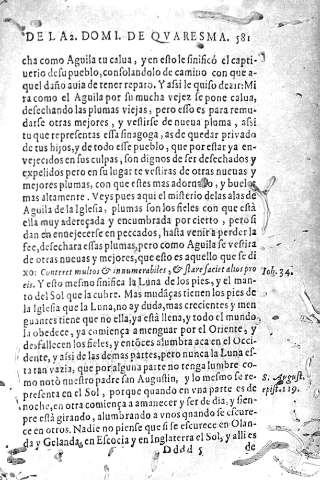 DE LA 2. DOMI. DE QVARESMA. 581
cha como Aguila tu calua, y en esso le sinificó el capti-
uerio de su pueblo, consolandolo de camino con que a-
quel daño auia de tener reparo. Y assi le quiso dezir: Mi
ra como el Aguila por su mucha vejez se pone calua,
desechando las plumas viejas, pero esso es para remu-
darse otras mejores, y vestirse de nueua ploma, assi
tu que representas essa sinagoga, as de quedar priuado
de tus hijos, y de todo esse pueblo, que por estar ya en-
vejecidos en sus culpas, son dignos de ser desechados y
expelidos pero en su lugar te vestiras de otras nueuas y
mejores plumas, con que estes mas adornado, y bueles
mas altamente. Veys pues aqui el misterio de las alas de
Aguila de la Iglesia, plumas son los fieles con que està
ella muy adereçada y encumbrada por cierto, pero si
dan en enuejecerse en peccados, hasta venir a perder la
fee, desechara essas plumas, pero como Aguila se vestira
de otras nueuas y mejores, que esto es aquello que se di
xo: Conteret multos & innumerabiles, & stare faciet alios pro
eis. Y esto mesmo sinifica la Luna de los pies, y el man-
to del Sol que la cubre. Mas mudãças tienen los pies de
la Iglesia que la Luna, no ay duda, mas crecientes y men
guantes tiene que no ella, ya està llena, y todo el mundo
la obedece, ya comiença a menguar por el Oriente, y
desfallecen los fieles, y entõces alumbra acà en el Occi-
dente, y assi de las demas partes, pero nunca la Luna es-
tà tan vazia, que por alguna parte no tenga lumbre co-
mo notò nuestro padre san Augustin, y lo mesmo se re-
presenta en el Sol, porque quando en vna parte es de
noche, en otra comiença a amanecer y ser de dia, y siem-
pre està girando, alumbrando a vnos quando se escure-
ce en otros. Nadie no piense que si se escurece en Olan-
da y Gelanda, en Escocia y en Inglaterra el Sol, y alli es
Dddd 5 de
Iob. 34.
S. August.
epist. 119.